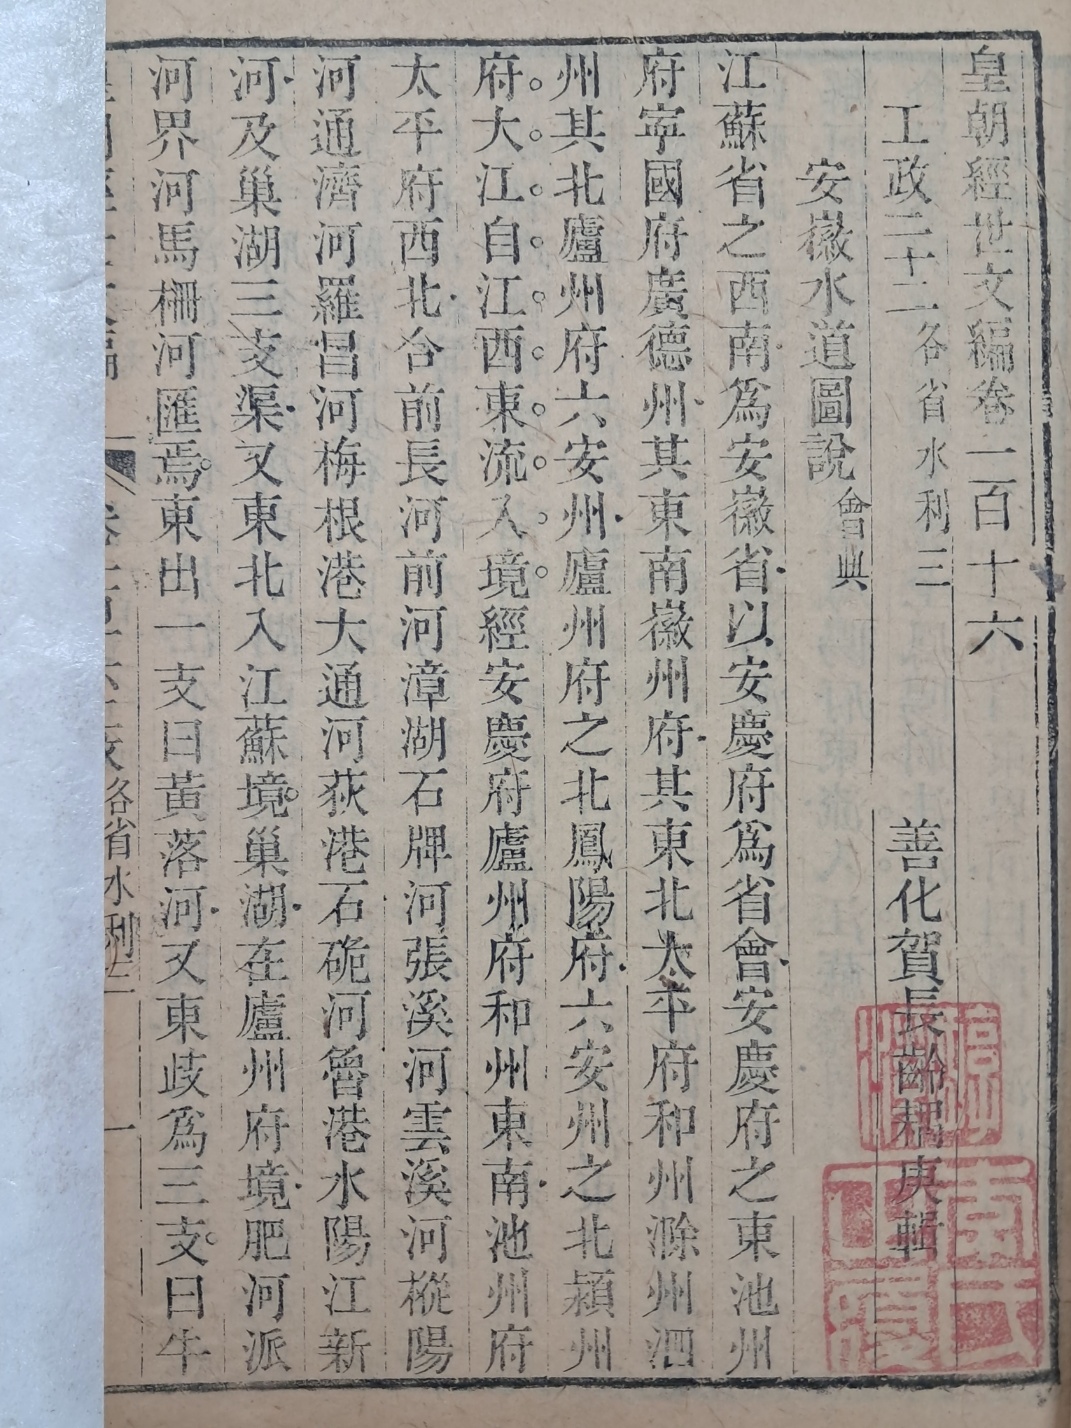 皇朝經世文編卷一百十六
工政二十二各省水利三
善化賀長齡耦庚輯
安徽水道圖說會典
江蘇省之西南爲安徽省以安慶府爲省會安慶府之東池州
府寧國府廣德州其東南徽州府其東北太平府和州滁州泗
州其北廬州府六安州廬州府之北鳳陽府六安州之北潁州
府大江自江西東流入境經安慶府廬州府和州東南池州府
太平府西北合前長河前河漳湖石牌河張溪河雲溪河樅陽
河通濟河羅昌河梅根港大通河荻港石硊河魯港水陽江新
河及巢湖三支渠又東北入江蘇境巢湖在廬州府境肥河派
河界河馬柵河匯焉東出一支曰黃落河又東歧爲三支曰牛
各省水利三
一